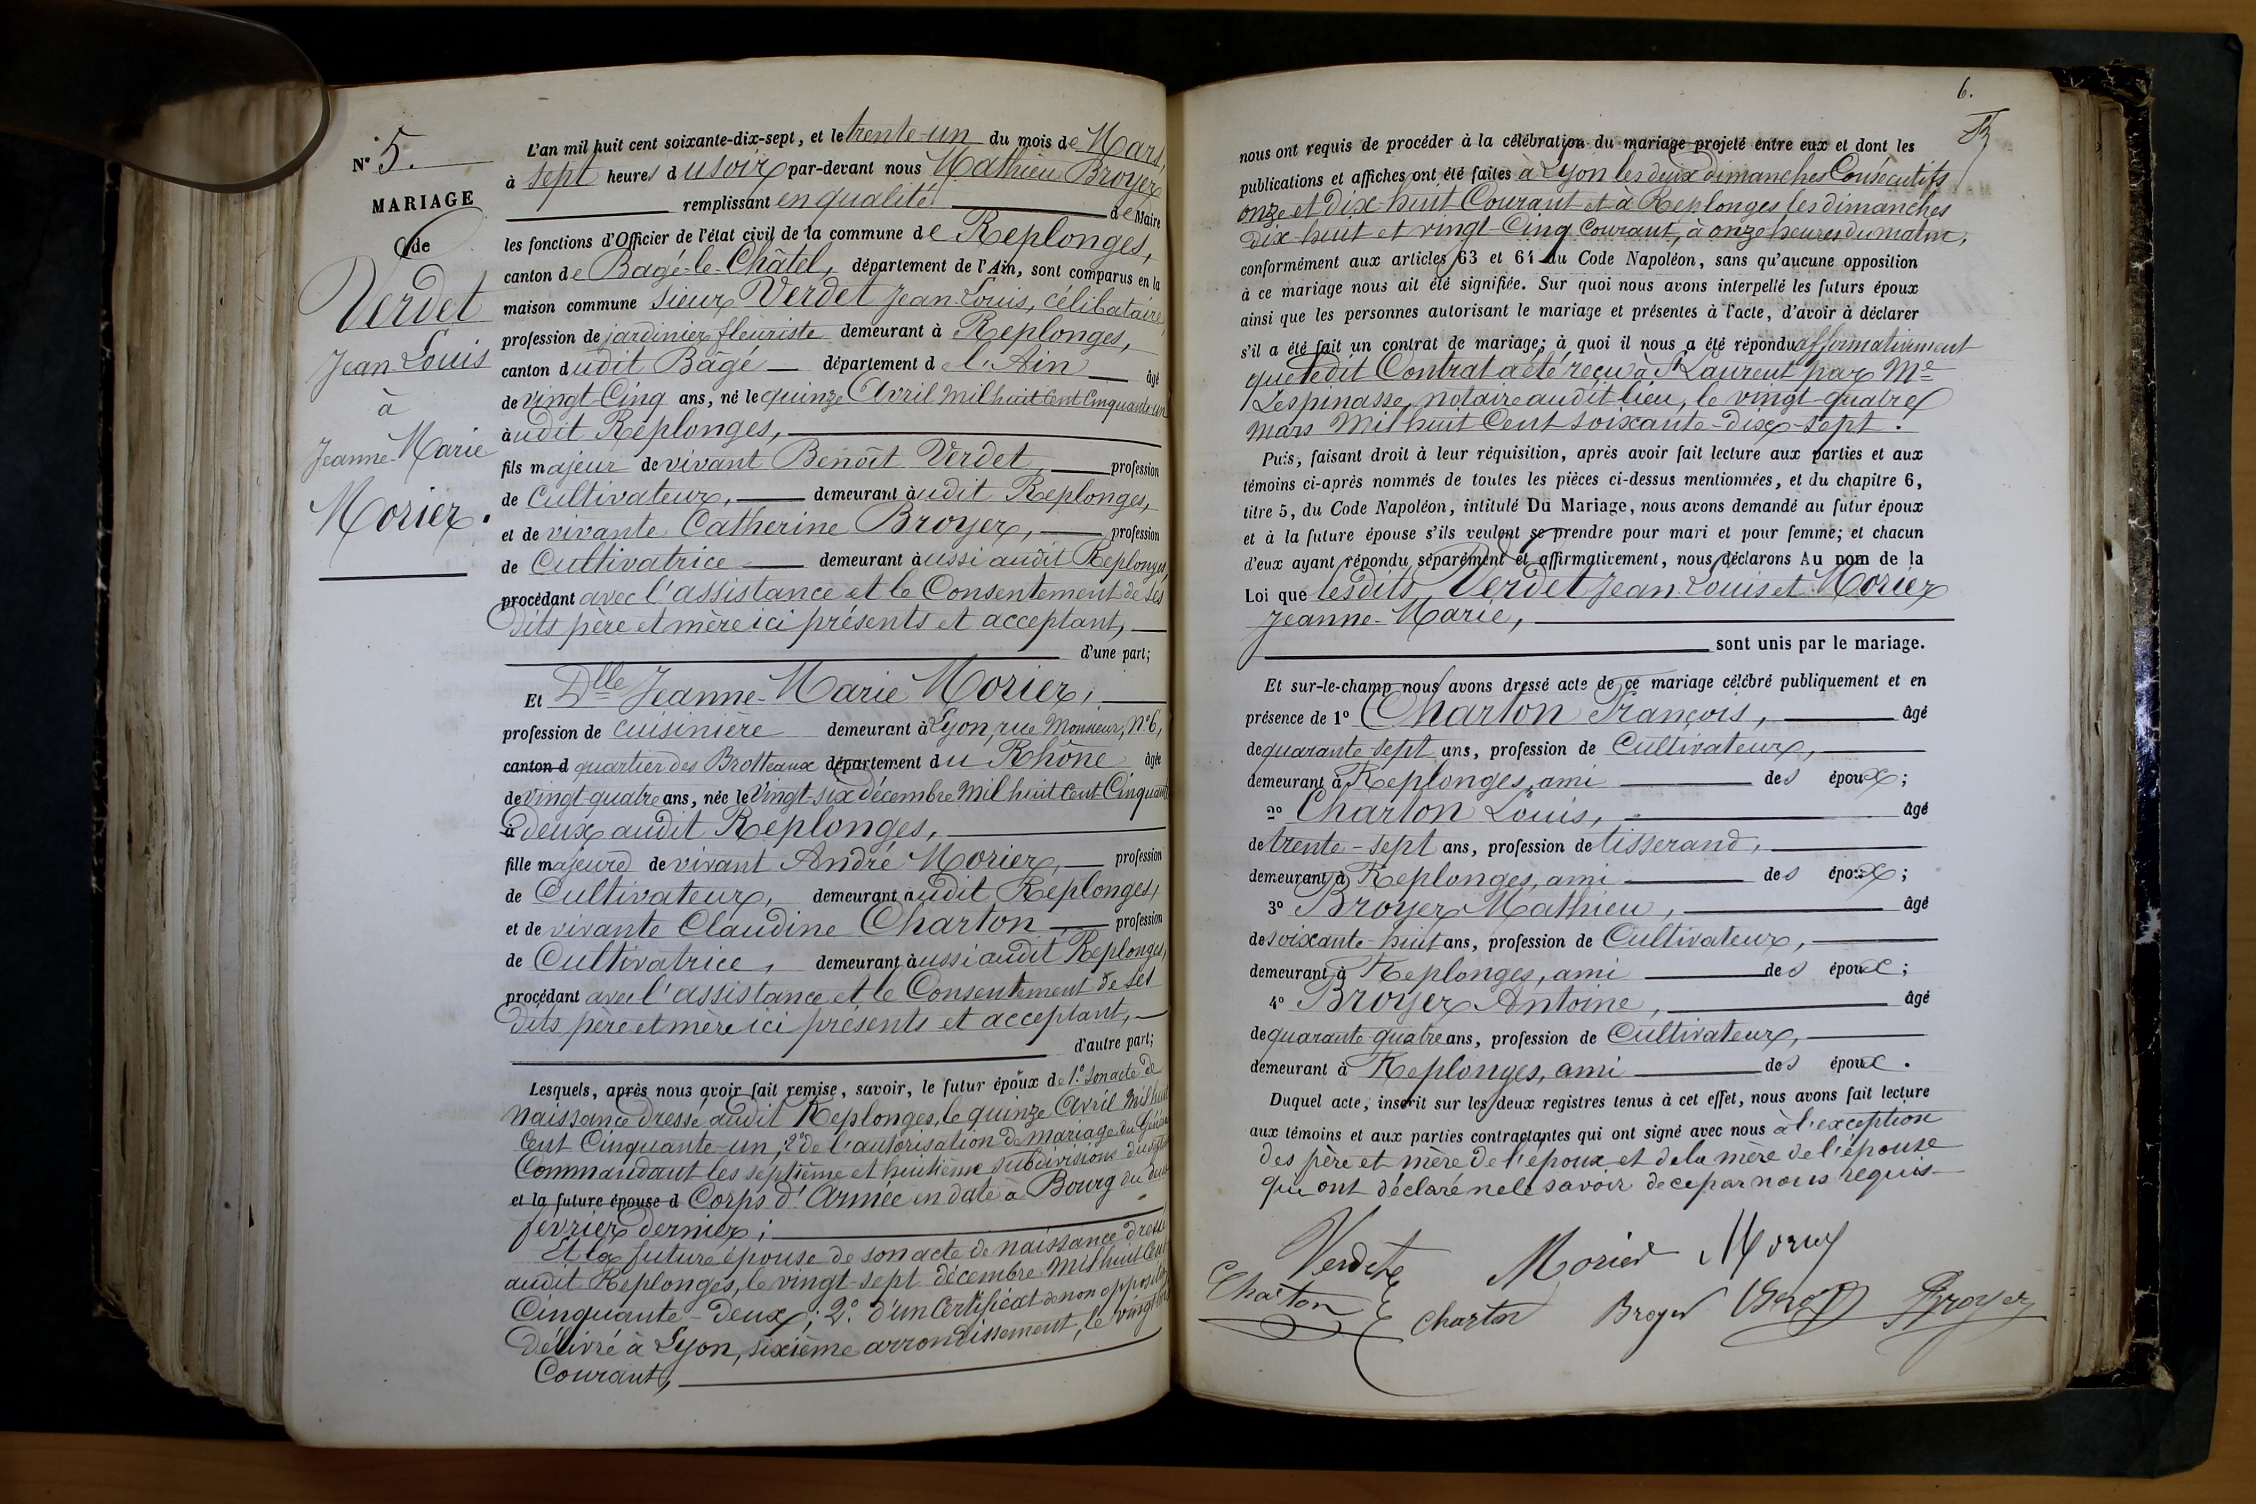 N° 5.
MARIAGE
de
Verdet
Jean-Louis
à
Jeanne-Marie
Morier.
L'an mil huit cent soixante-dix-sept, et le trente-un du mois de Mars,
à sept heures du soir par-devant nous Mathieu Broyer
remplissant en qualité de Maire
les fonctions d'Officier de l'état civil de la commune de Replonges,
canton de Bagé-le-Châtel, département de l'Ain, sont comparus en la
maison commune sieur Verdet Jean-Louis, célibataire,
profession de jardinier fleuriste demeurant à Replonges,
canton dudit Bâgé département de l'Ain âgé
de vingt-Cinq ans, né le quinze Avril mil huit Cent Cinquante un
àudit Replonges,
fils majeur de vivant Benoît Verdet, profession
de Cultivateur, demeurant àudit Replonges,
et de vivante Catherine Broyer, profession
de Cultivatrice demeurant àussi audit Replonges,
procédant avec l'assistance et le Consentement de ses
dits père et mère ici présents et acceptant,
d'une part;
Et Dlle Jeanne-Marie Morier,
profession de cuisinière demeurant à Lyon, rue Monsieur, N° 6,
canton d quartier des Brotteaux département du Rhône âgée
de vingt-quatre ans, née le Vingt-six décembre Mil huit Cent Cinquante
à deux audit Replonges,
fille majeure de vivant André Morier, profession
de Cultivateur, demeurant àudit Replonges,
et de vivante Claudine Charton profession
de Cultivatrice, demeurant àussi audit Replonges,
procédant avec l'assistance et le Consentement de ses
dits père et mère ici présents et acceptant,
d'autre part;
Lesquels, après nous avoir fait remise, savoir, le futur époux de 1° son acte de
naissance dressé audit Replonges, le quinze Avril Mil huit
Cent Cinquante-un, 2° de l'autorisation de mariage du Général
Commandant les septième et huitième subdivisions du
et la future épouse d Corps d'Armée en date à Bourg du
février dernier;
Et la future épouse de son acte de naissance dressé
audit Replonges, le vingt-sept décembre Mil huit Cent
Cinquante-deux; 2° d'un Certificat de non opposition
délivré à Lyon, sixième arrondissement, le
Courant,
6.
nous ont requis de procéder à la célébration du mariage projeté entre eux et dont les
publications et affiches ont été faites à Lyon les deux dimanches Consécutifs
onze et dix-huit Courant et à Replonges les dimanches
dix-huit et vingt-Cinq Courant, à onze heures du matin,
conformément aux articles 63 et 64 du Code Napoléon, sans qu'aucune opposition
à ce mariage nous ait été signifiée. Sur quoi nous avons interpellé les futurs époux
ainsi que les personnes autorisant le mariage et présentes à l'acte, d'avoir à déclarer
s'il a été fait un contrat de mariage; à quoi il nous a été répondu affirmativement
que ledit Contrat a été reçu à St Laurent par Me
Lespinasse, notaire audit lieu, le vingt-quatre
mars Mil huit Cent soixante-dix-sept.
Puis, faisant droit à leur réquisition, après avoir fait lecture aux parties et aux
témoins ci-après nommés de toutes les pièces ci-dessus mentionnées, et du chapitre 6,
titre 5, du Code Napoléon, intitulé Du Mariage, nous avons demandé au futur époux
et à la future épouse s'ils veulent se prendre pour mari et pour femme; et chacun
d'eux ayant répondu séparément et affirmativement, nous déclarons Au nom de la
Loi que lesdits Verdet Jean-Louis et Morier
Jeanne-Marie,
sont unis par le mariage.
Et sur-le-champ nous avons dressé acte de ce mariage célébré publiquement et en
présence de 1° Charton François, âgé
de quarante sept ans, profession de Cultivateur,
demeurant à Replonges, ami des époux;
2° Charton Louis, âgé
de trente-sept ans, profession de tisserand,
demeurant à Replonges, ami des époux;
3° Broyer Mathieu, âgé
de soixante-huit ans, profession de Cultivateur,
demeurant à Replonges, ami des époux;
4° Broyer Antoine, âgé
de quarante quatre ans, profession de Cultivateur,
demeurant à Replonges, ami des époux.
Duquel acte, inscrit sur les deux registres tenus à cet effet, nous avons fait lecture
aux témoins et aux parties contractantes qui ont signé avec nous à l'exception
des père et mère de l'époux et de la mère de l'épouse
qui ont déclaré ne le savoir de ce par nous requis
Verdet Morier Morier
Charton Charton Broyer Broyer